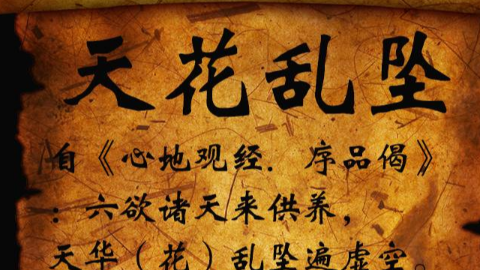 天花乱坠
自《心地观经．序品偈》
：六欲诸天来供养，
天华（花）乱坠遍虚空。